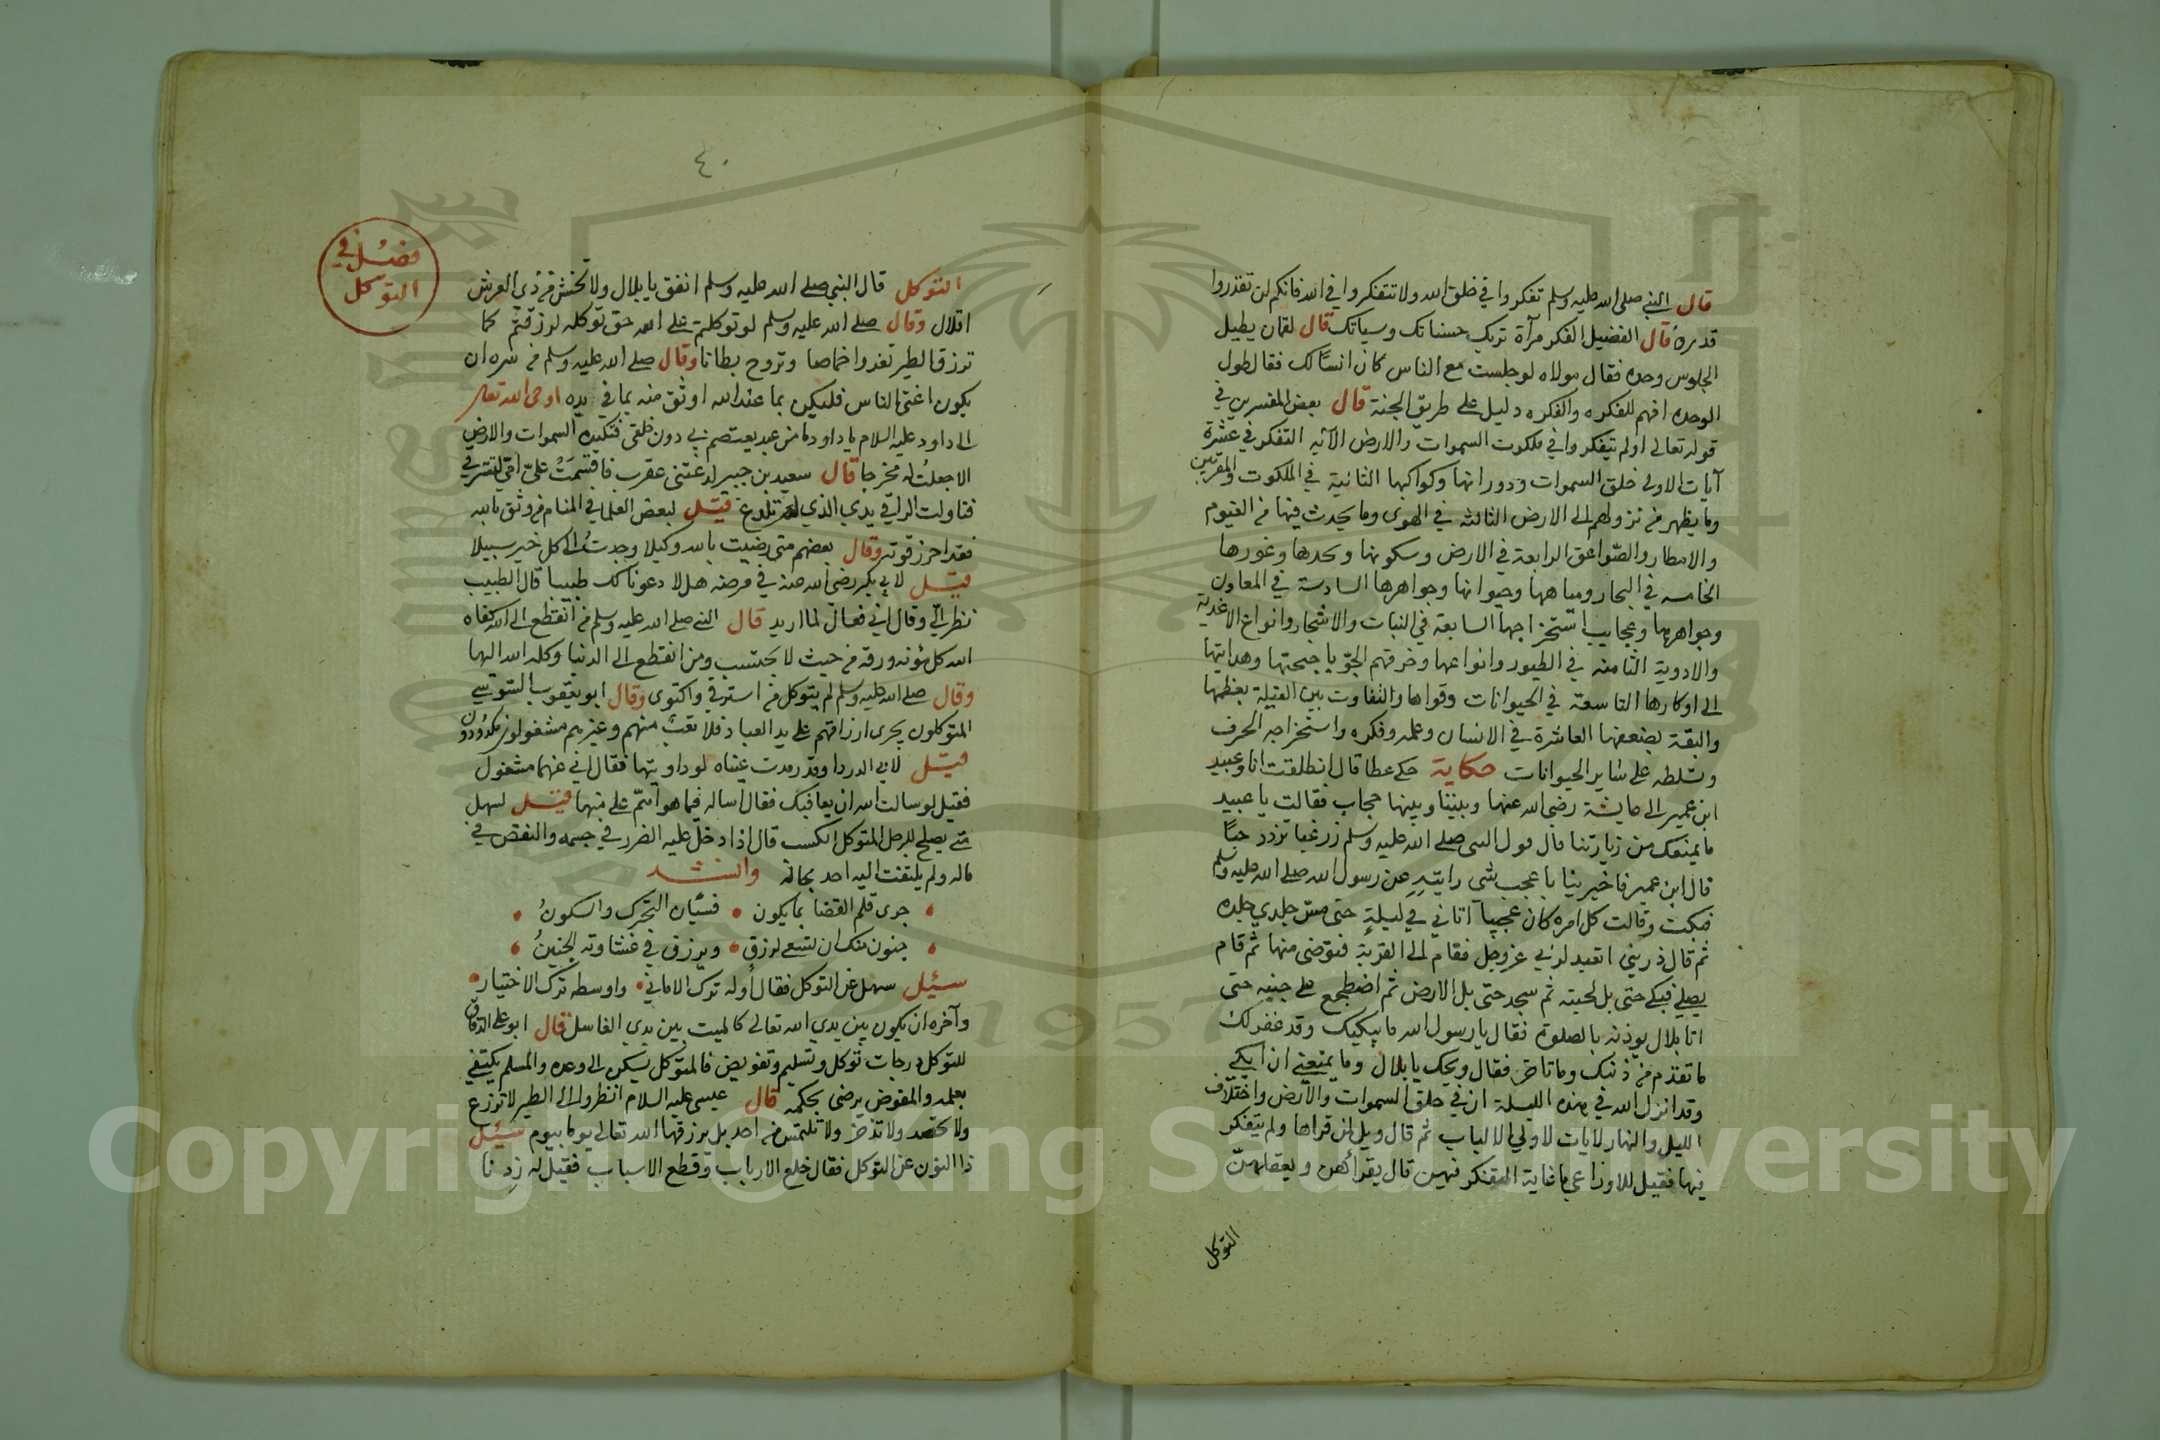 قال النبي صلى الله عليه وسلم تفكروا في خلق الله ولا تتفكروا في الله فانكم لن تقدروا
قدره قال الفضيل الفكر مرآة تريك حسناتك وسياتك قال لقمان يطيل
الجلوس وحده فقال مولاه لو جلست مع الناس كان انسًا لك فقال طول
الوحده افهم للفكره والفكره دليل على طريق الجنة قال بعض المفسرين في
قوله تعالى اولم يتفكروا في ملكوت السموات والارض الآيه التفكر في عشرة
آيات الاولى خلق السموات ودورانها وكواكبها الثانية في الملكوت والمقربين
وما يظهر من نزولهم الى الارض الثالثه في الهوى وما يحدث فيها من الغيوم
والامطار والصواعق الرابعة في الارض وسكونها وغورها
الخامسه في البحار ومياهها وحيوانها وجواهرها السادسة في المعادن
وجواهرها وعجايب استخراجها السابعة في النبات والاشجار وانواع الاغذية
والادوية الثامنه في الطيور وانواعها وخرقهم الجو باجنحتها وهدايتها
الى اوكارها التاسعة في الحيوانات وقواها والتفاوت بين الفيلة بعظمها
والبقة بضعفها العاشرة في الانسان وعلمه وفكره واستخراجه الحرف
وتسلطه على سائر الحيوانات حكاية حكى عطا قال انطلقت انا وعبيد
ابن عمير الى عايشة رضى الله عنها وبيننا وبينها حجاب فقالت يا عبيد
ما يمنعك من زيارتنا قال قول النبى صلى الله عليه وسلم زر غبا تزدد حبًا
قال ابن عمير فاخبرينا باعجب شى رايتيه من رسول الله صلى الله عليه وسلم
فبكت وقالت كل امره كان عجيبا اتاني في ليلة حتى مس جلدي جلده
ثم قال ذريني اتعبد لربي عز وجل فقام الى القربة فتوضى منها ثم قام
يصلي فبكى حتى بل لحيته ثم سجد حتى بل الارض ثم اضطجع على جنبه حتى
اتا بلال يوذنه بالصلوة فقال يا رسول الله ما يبكيك وقد غفر لك
ما تقدم من ذنبك وما تاخر فقال ويحك يا بلال وما يمنعني ان ابكي
وقد انزل الله في هذه الليلة ان في خلق السموات والارض واختلاف
الليل والنهار لايات لاولي الالباب ثم قال ويل لمن قراها ولم يتفكر
فيها فقيل للاوزاعي ما غاية التفكر فيهن قال يقرأهن ويعقلهن
التوكل
٤٠
فصل في
التوكل
التوكل قال النبي صلى الله عليه وسلم انفق يا بلال ولا تخش من ذي العرش
اقلال وقال صلى الله عليه وسلم لو توكلتم على الله حق توكله لرزقتم كما
ترزق الطير تغدوا خماصا وتروح بطانا وقال صلى الله عليه وسلم من سره ان
يكون اغنى الناس فليكن بما عند الله اوثق منه بما في يده اوحى الله تعالى
الى داود عليه السلام يا داود ما من عبد يعتصم بي دون خلقى فتكيده السموات والارض
الا جعلت له مخرجا قال سعيد بن جبير لدغتني عقرب فاقسمت علي امي لتسترقي
فناولت الراقي يدي الذي لم تلدغ قيل لبعض العلما في المنام من وثق بالله
فقد احرز قوته وقال بعضهم متى رضيت بالله وكيلا وجدت الى كل خير سبيلا
قيل لابي بكر رضى الله عنه في مرضه هلا دعونا لك طبيبا قال الطبيب
نظر الي وقال اني فعال لما اريد قال النبي صلى الله عليه وسلم من انقطع الى الله كفاه
الله كل مؤنه ورزقه من حيث لا يحتسب ومن انقطع الى الدنيا وكله الله اليها
وقال صلى الله عليه وسلم لم يتوكل من استرقى واكتوى وقال ابو يعقوب السوسي
المتوكلون يجرى ارزاقهم على يد العباد فلا تعب منهم وغيرهم مشغولون مكدودون
قيل لابي الدردا وقد رمدت عيناه لو داويتها فقال اني عنهما مشغول
فقيل لو سالت الله ان يعافيك فقال اساله فيما هو اهم علي منهما قيل لسهل
متى يصلح للرجل المتوكل الكسب قال اذا دخل عليه الضرر في جسمه والنقص في
ماله ولم يلتفت اليه احد بحاله وانشد
جرى قلم القضا بما يكون • فسيان التحرك والسكون
جنون منك ان تسعى لرزق • ويرزق في غشاوته الجنين
سئيل سهل عن التوكل فقال اوله ترك الاماني • واوسطه ترك الاختيار •
وآخره ان يكون بين يدي الله تعالى كالميت بين يدي الغاسل قال ابو علي الدقاق
للتوكل درجات توكل وتسليم وتفويض فالمتوكل يسكن الى وعده والمسلم يكتفي
بعلمه والمفوض يرضى بحكمه قال عيسى عليه السلام انظروا الى الطير لا تزرع
ولا تحصد ولا تدخر ولا تلتمس من احد بل يرزقها الله تعالى يوما بيوم سئيل
ذا النون عن التوكل فقال خلع الارباب وقطع الاسباب فقيل له زدنا
Copyright © King Saud University
1957